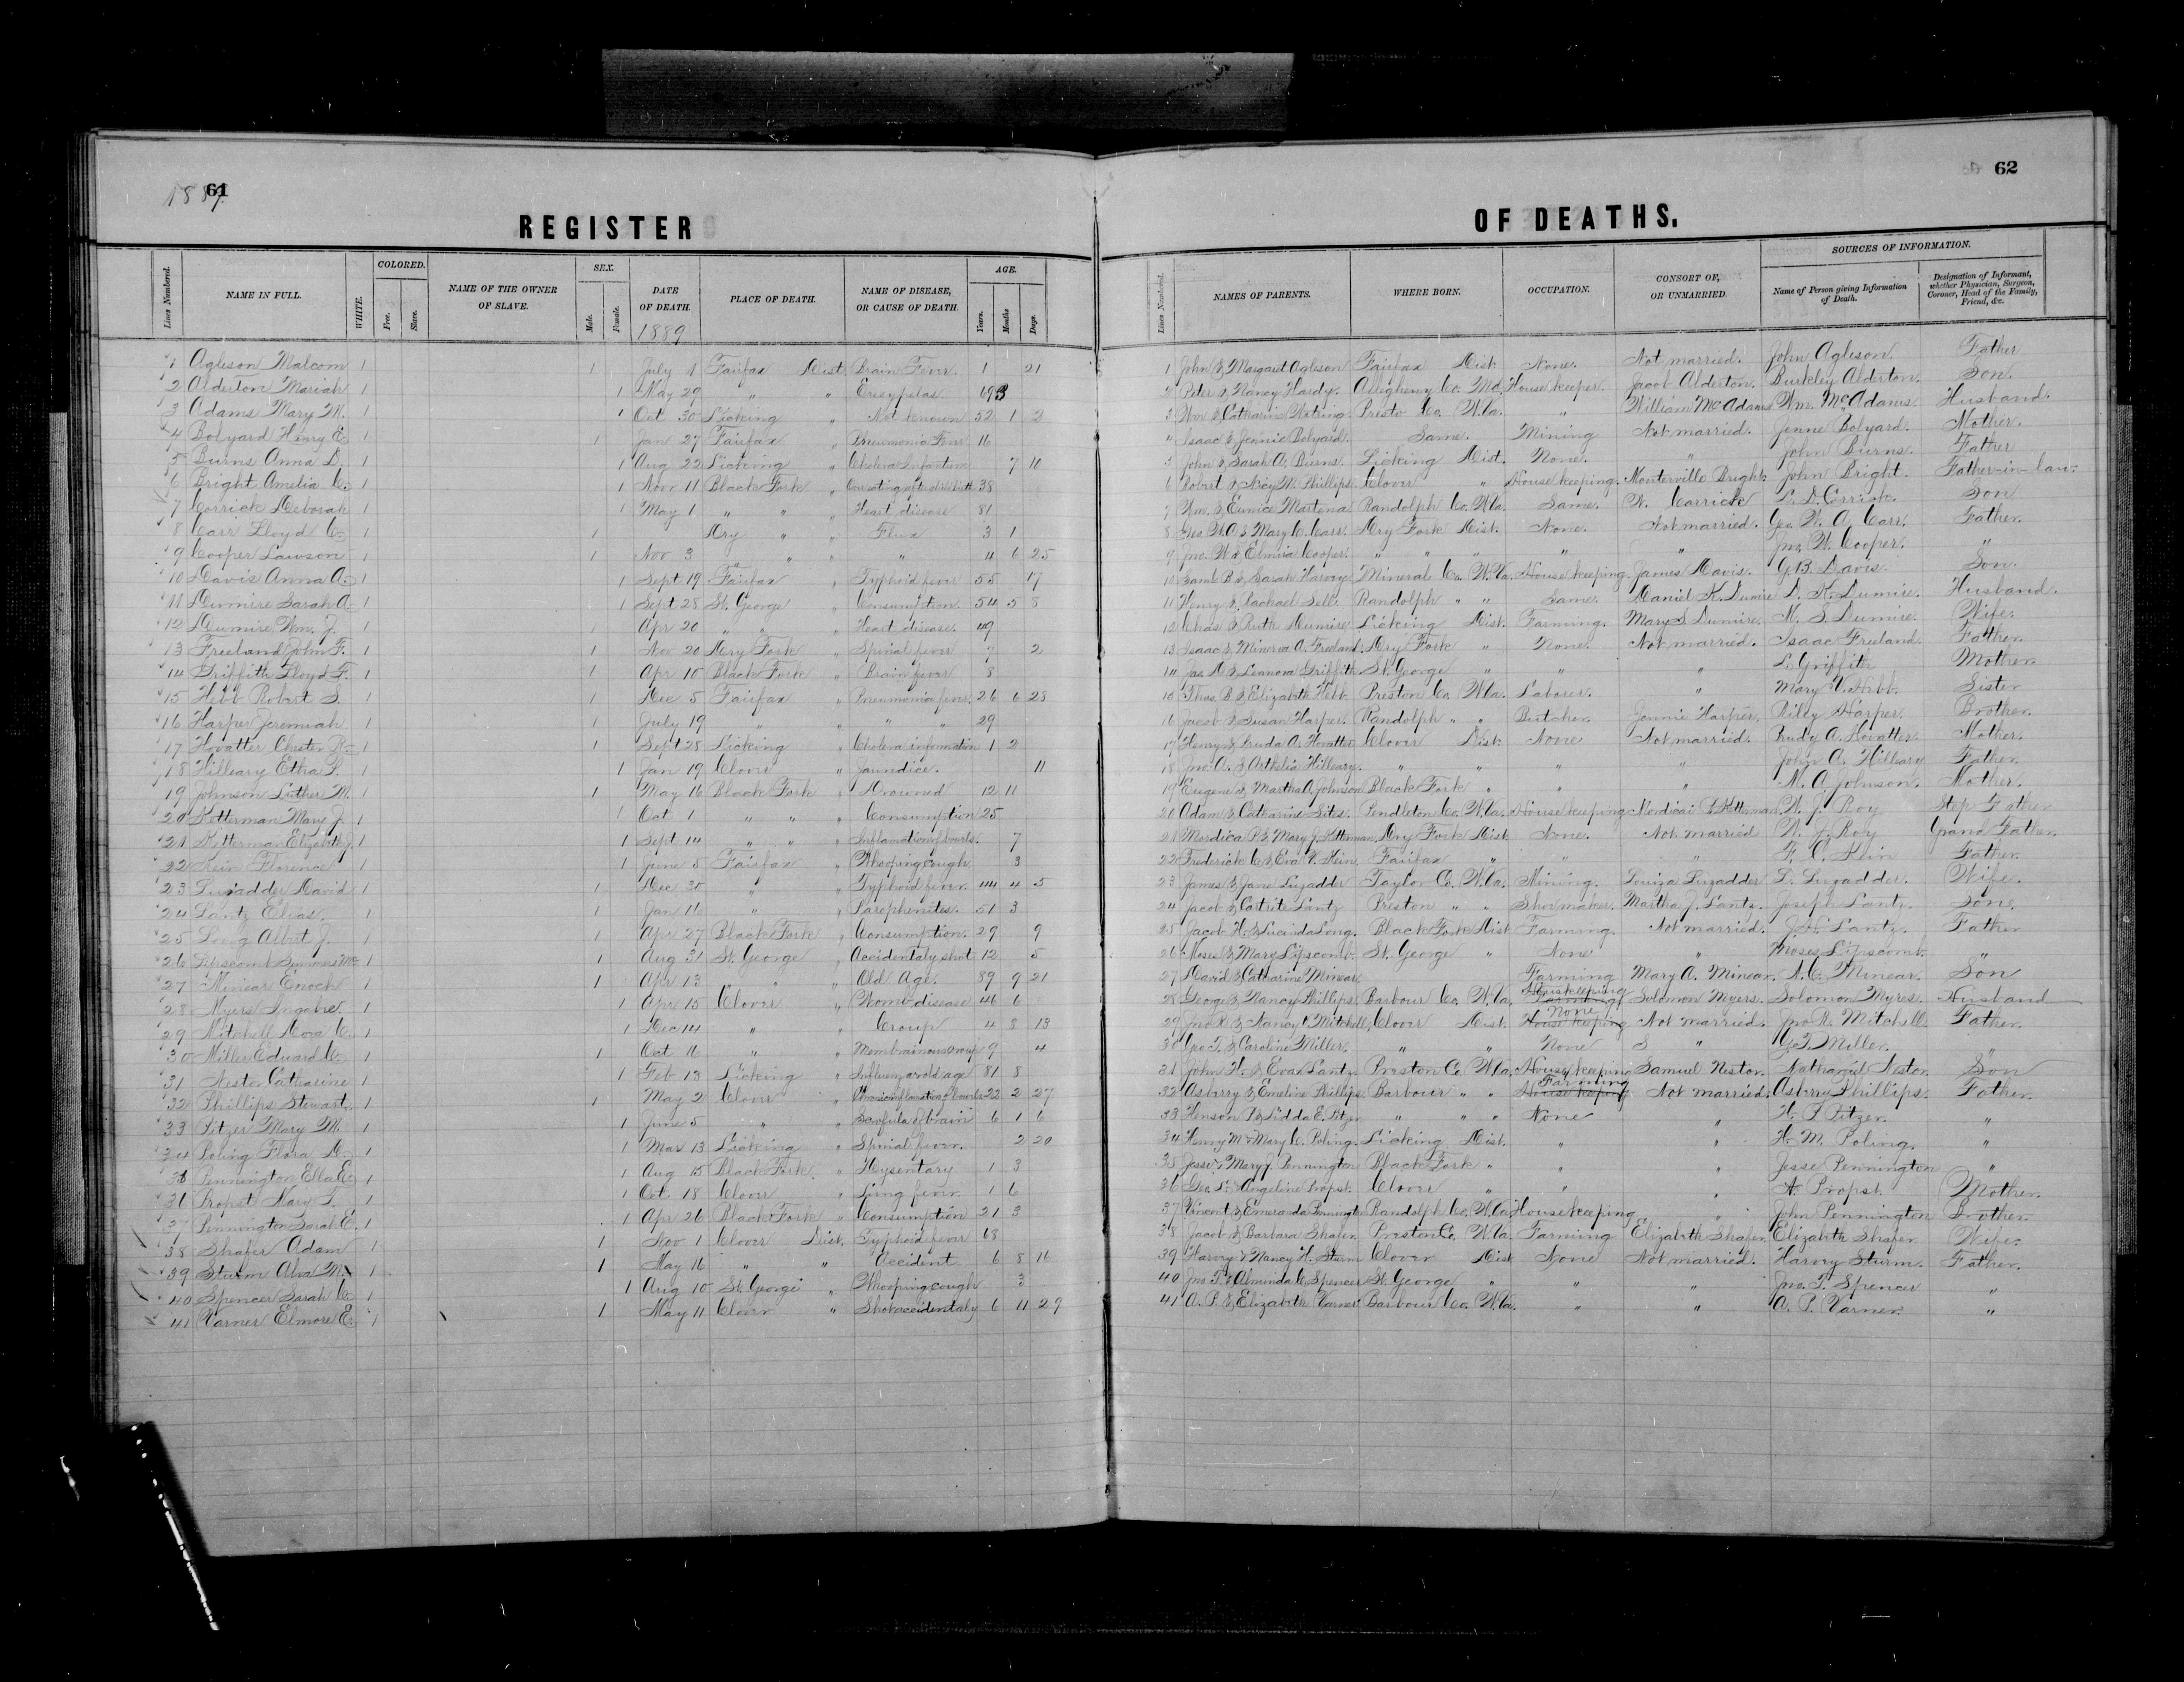 1889
61
REGISTER
Lines Numbered.
NAME IN FULL.
WHITE.
COLORED.
Free.
Slave.
NAME OF THE OWNER
OF SLAVE.
SEX.
Male.
Female.
DATE
OF DEATH.
1889
PLACE OF DEATH.
NAME OF DISEASE,
OR CAUSE OF DEATH.
AGE.
Years.
Months
Days.
1 Agleson Malcom 1 1 July 1 Fairfax Dist Brain Fever 1 21
2 Alderton Mariah 1 1 May 29 " " Erisypelas
3 Adams Mary M. 1 1 Oct 30 Licking " Not known 52 1 2
4 Bolyard Henry E. 1 1 Jan 27 Fairfax " Pneumonia Fever 16
5 Burns Anna D. 1 1 Aug 22 Licking " Cholera Infantum 7 10
6 Bright Amelia C. 1 1 Nov 11 Black Fork " 38
7 Corrick Deborah 1 1 May 1 " " " Heart disease 81
8 Carr Lloyd C. 1 1 Dry " " Flux 3 1
9 Cooper Lawson 1 1 Nov 3 " " " " 4 6 25
10 Davis Anna A. 1 1 Sept 19 Fairfax " Typhoid fever 55 17
11 Dumire Sarah A. 1 1 Sept 28 St. George " Consumption. 54 5 8
12 Dumire Wm. J. 1 1 Apr 20 " " Heart disease. 49
13 Freeland John F. 1 1 Nov 20 Dry Fork " Spinial fever 7 2
14 Griffith Lloyd F. 1 1 Apr 10 Black Fork " Brain fever 8
15 Hebb Robert S. 1 1 Dec 5 Fairfax " Pneumonia fever. 26 6 28
16 Harper Jeremiah 1 1 July 19 " " " " 29
17 Hovatter Chester R. 1 1 Sept 28 Licking " Cholera 1 2
18 Hilleary Etha L. 1 1 Jan 19 Clover " Jaundice. 11
19 Johnson Luther M. 1 1 May 16 Black Fork " Drowned 12 11
20 Ketterman Mary J. 1 1 Oct 1 " " " Consumption 25
21 Ketterman Elizabeth J. 1 1 Sept 14 " " " Inflamation of bowels. 7
22 Kein Florence 1 1 June 5 Fairfax " Whooping cough. 3
23 Luzadder David 1 1 Dec 30 " " Typhoid fever. 44 4 5
24 Lantz Elias. 1 1 Jan 16 " " 51 3
25 Long Albert J. 1 1 Apr 27 Black Fork " Consumption. 29 9
26 Lipscomb 1 1 Aug 31 St. George " Accidentaly shot 12 5
27 Minear Enoch 1 1 Apr 13 " " Old Age. 89 9 21
28 Myers 1 1 Apr 15 Clover " Womb disease 46 6
29 Mitchell Dora C. 1 1 Dec 14 " " Croup 4 8 13
30 Miller Edward C. 1 1 Oct 16 " " Membrainous croup 9 4
31 Nestor Catharine 1 1 Feb 13 Licking " 81 8
32 Phillips Stewart. 1 1 May 2 Clover " 22 2 27
33 Pitzer Mary M. 1 1 June 5 " " Scrofula of brain 6 1 6
34 Poling Flora D. 1 1 Mar 13 Licking " Spinial fever. 2 20
35 Pennington Ella E. 1 1 Aug 15 Black Fork " Dysentary 1 3
36 Propst Mary T. 1 1 Oct 18 Clover " Lung fever 1 6
37 Pennington Sarah E. 1 1 Apr 26 Black Fork " Consumption 21 3
38 Shafer Adam 1 1 Nov 1 Clover Dist. Typhoid fever 68
39 Sturm Alva M. 1 1 May 16 " " Accident 6 8 16
40 Spencer Sarah C. 1 1 Aug 10 St. George " Whooping cough 3
41 Varner Elmore E. 1 1 May 11 Clover " Shot accidentaly 6 11 29
62
OF DEATHS.
Lines Numbered.
NAMES OF PARENTS.
WHERE BORN.
OCCUPATION.
CONSORT OF,
OR UNMARRIED
SOURCES OF INFORMATION.
Name of Person giving Information
of Death.
Designation of Informant,
whether Physician, Surgeon,
Coroner, Head of the Family,
Friend, &c.
1 John & Margaret Agleson Fairfax Dist. None. Not married. John Agleson. Father
2 Peter & Nancy Hardy. Allegheny Co. Md. House keeper. Jacob Alderton. Burkley Alderton. Son.
3 Wm. & Catharine Notring. Presto Co. W.Va. " William McAdams Wm. McAdams. Husband.
4 Isaac & Jennie Bolyard. Same. Mining Not married. Jenne Bolyard. Mother.
5 John & Sarah A. Burns. Licking Dist. None. " John Burns. Father
6 Phillips. Clover " House keeping. Monterville Bright. John Bright. Father-in-law.
7 Wm. & Eunice Martena Randolph Co. W.Va. Same. W. Carrick L. D. Corrick. Son
8 Geo. W. A. & Mary C. Carr. Dry Fork Dist. None. Not married. Geo. W. A. Carr. Father.
9 Jno. W. & Elmira Cooper. " " " " " Jno. W. Cooper. "
10 Saml. B. & Sarah Harvey. Mineral Co. W.Va. House keeping. James Davis. G.B. Davis. Son.
11 Henry & Rachael Sell. Randolph " " Same. Daniel K. Dumire D. K. Dumire. Husband.
12 Chas. & Ruth Dumire. Licking Dist. Farming. Mary S. Dumire. M. S. Dumire. Wife.
13 Isaac & Minerva A. Freeland. Dry Fork " None. Not married. Isaac Freeland. Father.
14 Jas. D. & Leanora Griffith St. George " " " L. Griffith Mother.
15 Thos. B. & Elizabeth Hebb. Preston Co. W.Va. Laborer. " Mary V. Hebb. Sister
16 Jacob & Susan Harper. Randolph " " Butcher. Jennie Harper. Riley Harper. Brother.
17 Henry & Pruda A. Hovatter Clover Dist. None Not married. Prudy A. Hovatter. Mother.
18 Jno. A. & Arthelia Hilleary. " " " " John A. Hilleary. Father.
19 Eugene & Martha A. Johnson Black Fork " " " M. A. Johnson. Mother.
20 Adam & Catharine Sites. Pendleton Co. W.Va. House keeping Mordicai P. Ketterman W. J. Roy Step Father
21 Mordica P. & Mary J. Ketterman, Dry Fork Dist. None. Not married W. J. Roy Grand Father.
22 Frederick C. & Eva V. Kein. Fairfax " " " F. C. Kein Father.
23 James & Jane Luzadder Taylor Co. W.Va. Mining. Louiza Luzadder L. Luzadder. Wife.
24 Jacob & Lantz Preston " " Shoemaker. Martha J. Lantz. Joseph Lantz. Sone.
25 Jacob H. & Lucinda Long. Black Fork Dist Farming. Not married. J. H. Lantz. Father
26 Moses & Mary Lipscomb. St. George " None " Moses Lipscomb. "
27 David & Catharine Minear Farming Mary A. Minear. A. C. Minear. Son
28 George & Nancy Phillips. Barbour Co. W.Va. Housekeeping Farming Solomon Myers. Solomon Myers. Husband
29 Jno. R. & Nancy V. Mitchell. Clover Dist. None House keeping Not married. Jno. R. Mitchell. Father.
30 Geo. T. & Caroline Miller. " " None " G.T. Miller. "
31 John H. & Eva Lantz. Preston Co. W.Va. House keeping Samuel Nestor. Nathaniel Nestor. Son
32 Asberry & Emeline Phillips. Barbour " " Farming House keeping Not married. Asberry Phillips. Father.
33 Henson P. & Lidda E. Pitzer " " " None " H. P. Pitzer. "
34 Henry M. & Mary C. Poling. Licking Dist. " " H. M. Poling. "
35 Jesse & Mary J. Pennington Black Fork " " " Jesse Pennington "
36 Geo. L. & Angeline Propst. Clover " " " A. Propst. Mother.
37 Vincent & Emeranda Pennington Randolph Co. W.Va. Housekeeping " John Pennington Brother.
38 Jacob & Barbara Shafer. Preston Co. W.Va. Farming Elizabeth Shafer. Elizabeth Shafer Wife.
39 Harvey & Nancy H. Sturm Clover Dist None Not married. Harvey Sturm. Father.
40 Jno. T. & Alminda C. Spencer St. George " " " Jno. T. Spencer "
41 A. P. & Elizabeth Varner Barbour Co. W.Va. " " A. P. Varner. "